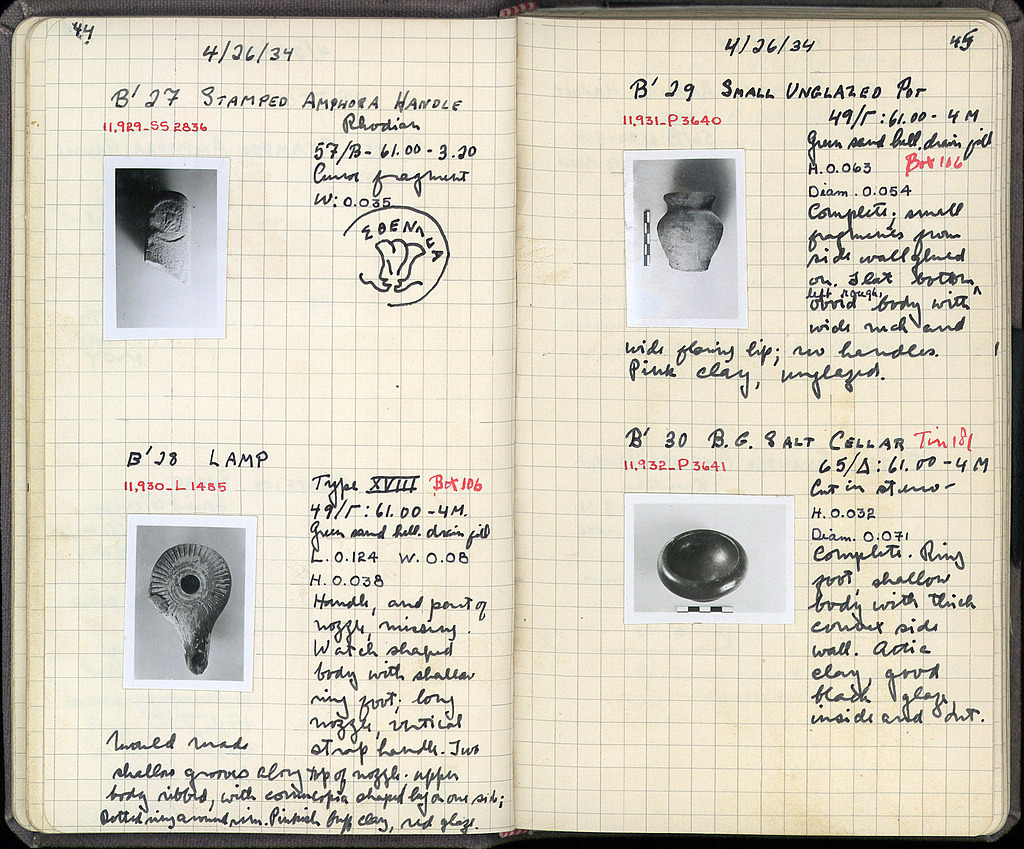 44
4/26/34
B' 27 STAMPED AMPHORA HANDLE
11,929-SS 2836
Rhodian
57/B- 61.00 - 3.20
fragment
W: 0.035
B' 28 LAMP
11,930-L 1485
Type XVIII Box 106
49/Γ: 61.00 - 4M.
Green sand drain
L. 0.124 W. 0.08
H. 0.038
Handle, and part of
nozzle, missing.
Watch shaped
body with shallow
ring foot; long
nozzle, vertical
strap handle. Two
mould made
shallow grooves along top of nozzle. upper
body ribbed, with cornucopia shaped lug on one side;
Dotted ring around rim. Pinkish buff clay, red glaze.
45
4/26/34
B' 29 SMALL UNGLAZED POT
11,931-P 3640
49/Γ: 61.00 - 4 M
Green sand drain
H. 0.063 Box 106
Diam. 0.054
Complete; small
fragments from
side wall glued
on. Flat bottom
left rough,
ovoid body with
wide neck and
wide flaring lip; no handles.
Pink clay, unglazed.
B' 30 B.G. SALT CELLAR Tin 181
11,932-P 3641
65/Δ: 61.00 - 4 M
Cut in
H. 0.032
Diam. 0.071
Complete. Ring
foot, shallow
body with thick
convex side
wall. Attic
clay, good
black glaze
inside and out.